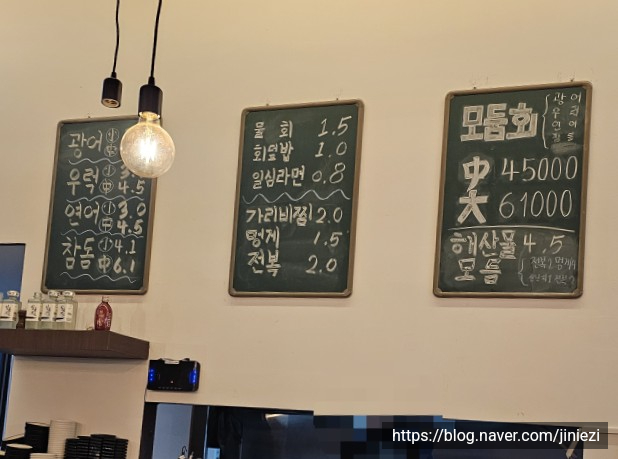 광어 小
中
우럭 小 3.
中 4.5
연어 小 3.0
中 4.5
참돔 小 4.1
中 6.1
물회 1.5
회덮밥 1.0
일심라면 0.8
가리비찜 2.0
멍게 1.5
전복 2.0
모듬회 광어
우럭
연어
참돔
中 45000
大 61000
해산물 4.5
모듬 전복2 멍게1
https://blog.naver.com/jiniezi